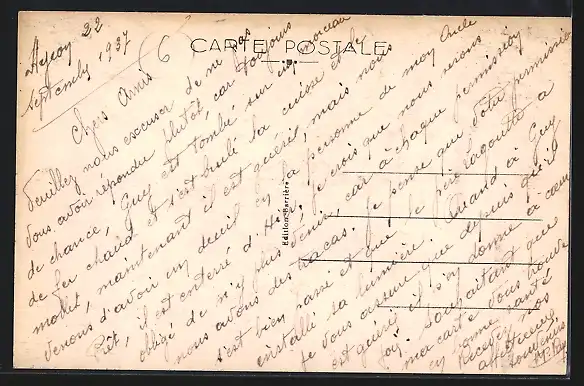 Hyeon 22
Septembre 1937
6
CARTE POSTALE
Chers Amis
Veuillez nous excuser de ne pas
vous avoir répondu plutôt, car toujours
de chance, Guy est tombé sur un morceau
de fer chaud et s'est brulé la cuisse et le
mollet, maintenant il est guéri, mais nous
venons d'avoir un deuil en la personne de mon Oncle
il est enterré d'Hier, je crois que nous serons
obligé de n'y plus venir, car à chaque permission
nous avons des tracas. Je pense que votre permission
s'est bien passé et que le père Lagoutte a
installé sa lumière. Quand à Guy
je vous assure que depuis qu'il
est guéri il s'en donne à cœur
joie. Souhaitant que
ma carte vous trouve
en bonne santé
Recevez nos
affectueux
souvenirs
Edition Barrière